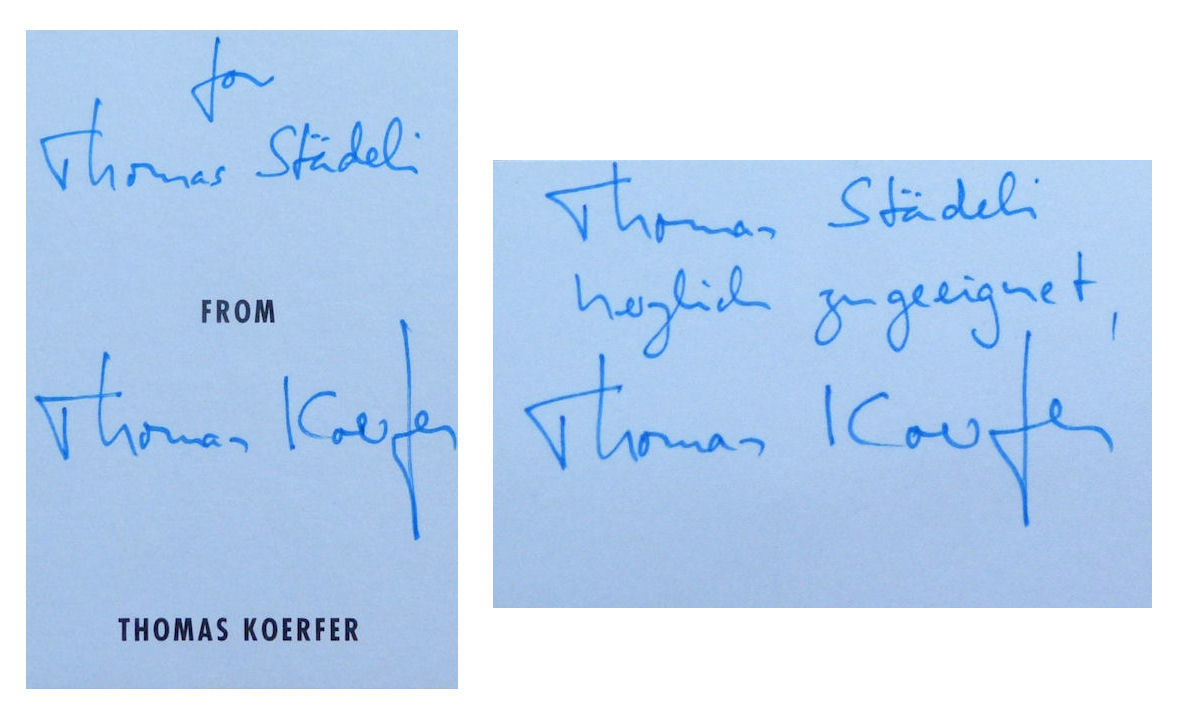 for
Thomas Städeli
FROM
Thomas Koerfer
THOMAS KOERFER
Thomas Städeli
herzlich zugeeignet,
Thomas Koerfer